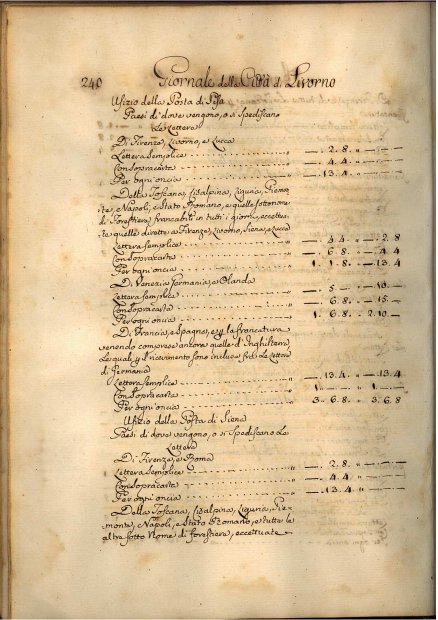 240 Giornale della Città di Livorno
Ufizio della Posta di Pisa
Paesi di dove vengono, o si Spediscano
Le Lettere
Di Firenze, Livorno, e Lucca
Lettera Semplice " —. 2. 8. — . — . —
Con Sopracarta " —. 4. 4. — . — . —
Per ogni oncia " —. 13. 4. — . — . —
Della Toscana, Cisalpina, Liguria, Piemon-
te, e Napoli, e Stato Romano, e quelle sotto nome
di Forestiere francabili in tutti i giorni, eccettua-
te quelle dirette a Firenze, Livorno, Siena, e Lucca
Lettera Semplice " —. 4. 4. — . 2. 8
Con Sopracarta " —. 6. 8. — . 4. 4
Per ogni oncia " 1. 1. 8. — . 13. 4
Di Venezia Germania, e Olanda
Lettera Semplice " —. 5. — . — . 10. —
Con Sopracarta " —. 6. 8. — . 15. —
Per ogni oncia " 1. 6. 8. 2. 10. —
Di Francia, e Spagna, e p la francatura
venendo comprese ancora quelle d'Inghilterra
Le quali p il ricevimento sono incluse frà Le Lettere
di Germania
Lettera Semplice " —. 13. 4. — . 13. 4
Con Sopracarta " 1. " — . 1. — . —
Per ogni oncia " 3. 6. 8. 3. 6. 8
Ufizio della Posta di Siena
Paesi di dove vengono, o si Spediscano Le
Lettere
Di Firenze, e Roma
Lettera Semplice " —. 2. 8. — . — . —
Con Sopracarta " —. 4. 4. — . — . —
Per ogni oncia " —. 13. 4. — . — . —
Della Toscana, Cisalpina, Liguria, Pie-
monte, e Napoli, e Stato Romano, e tutte le
altre sotto Nome di forestiere, eccettuate